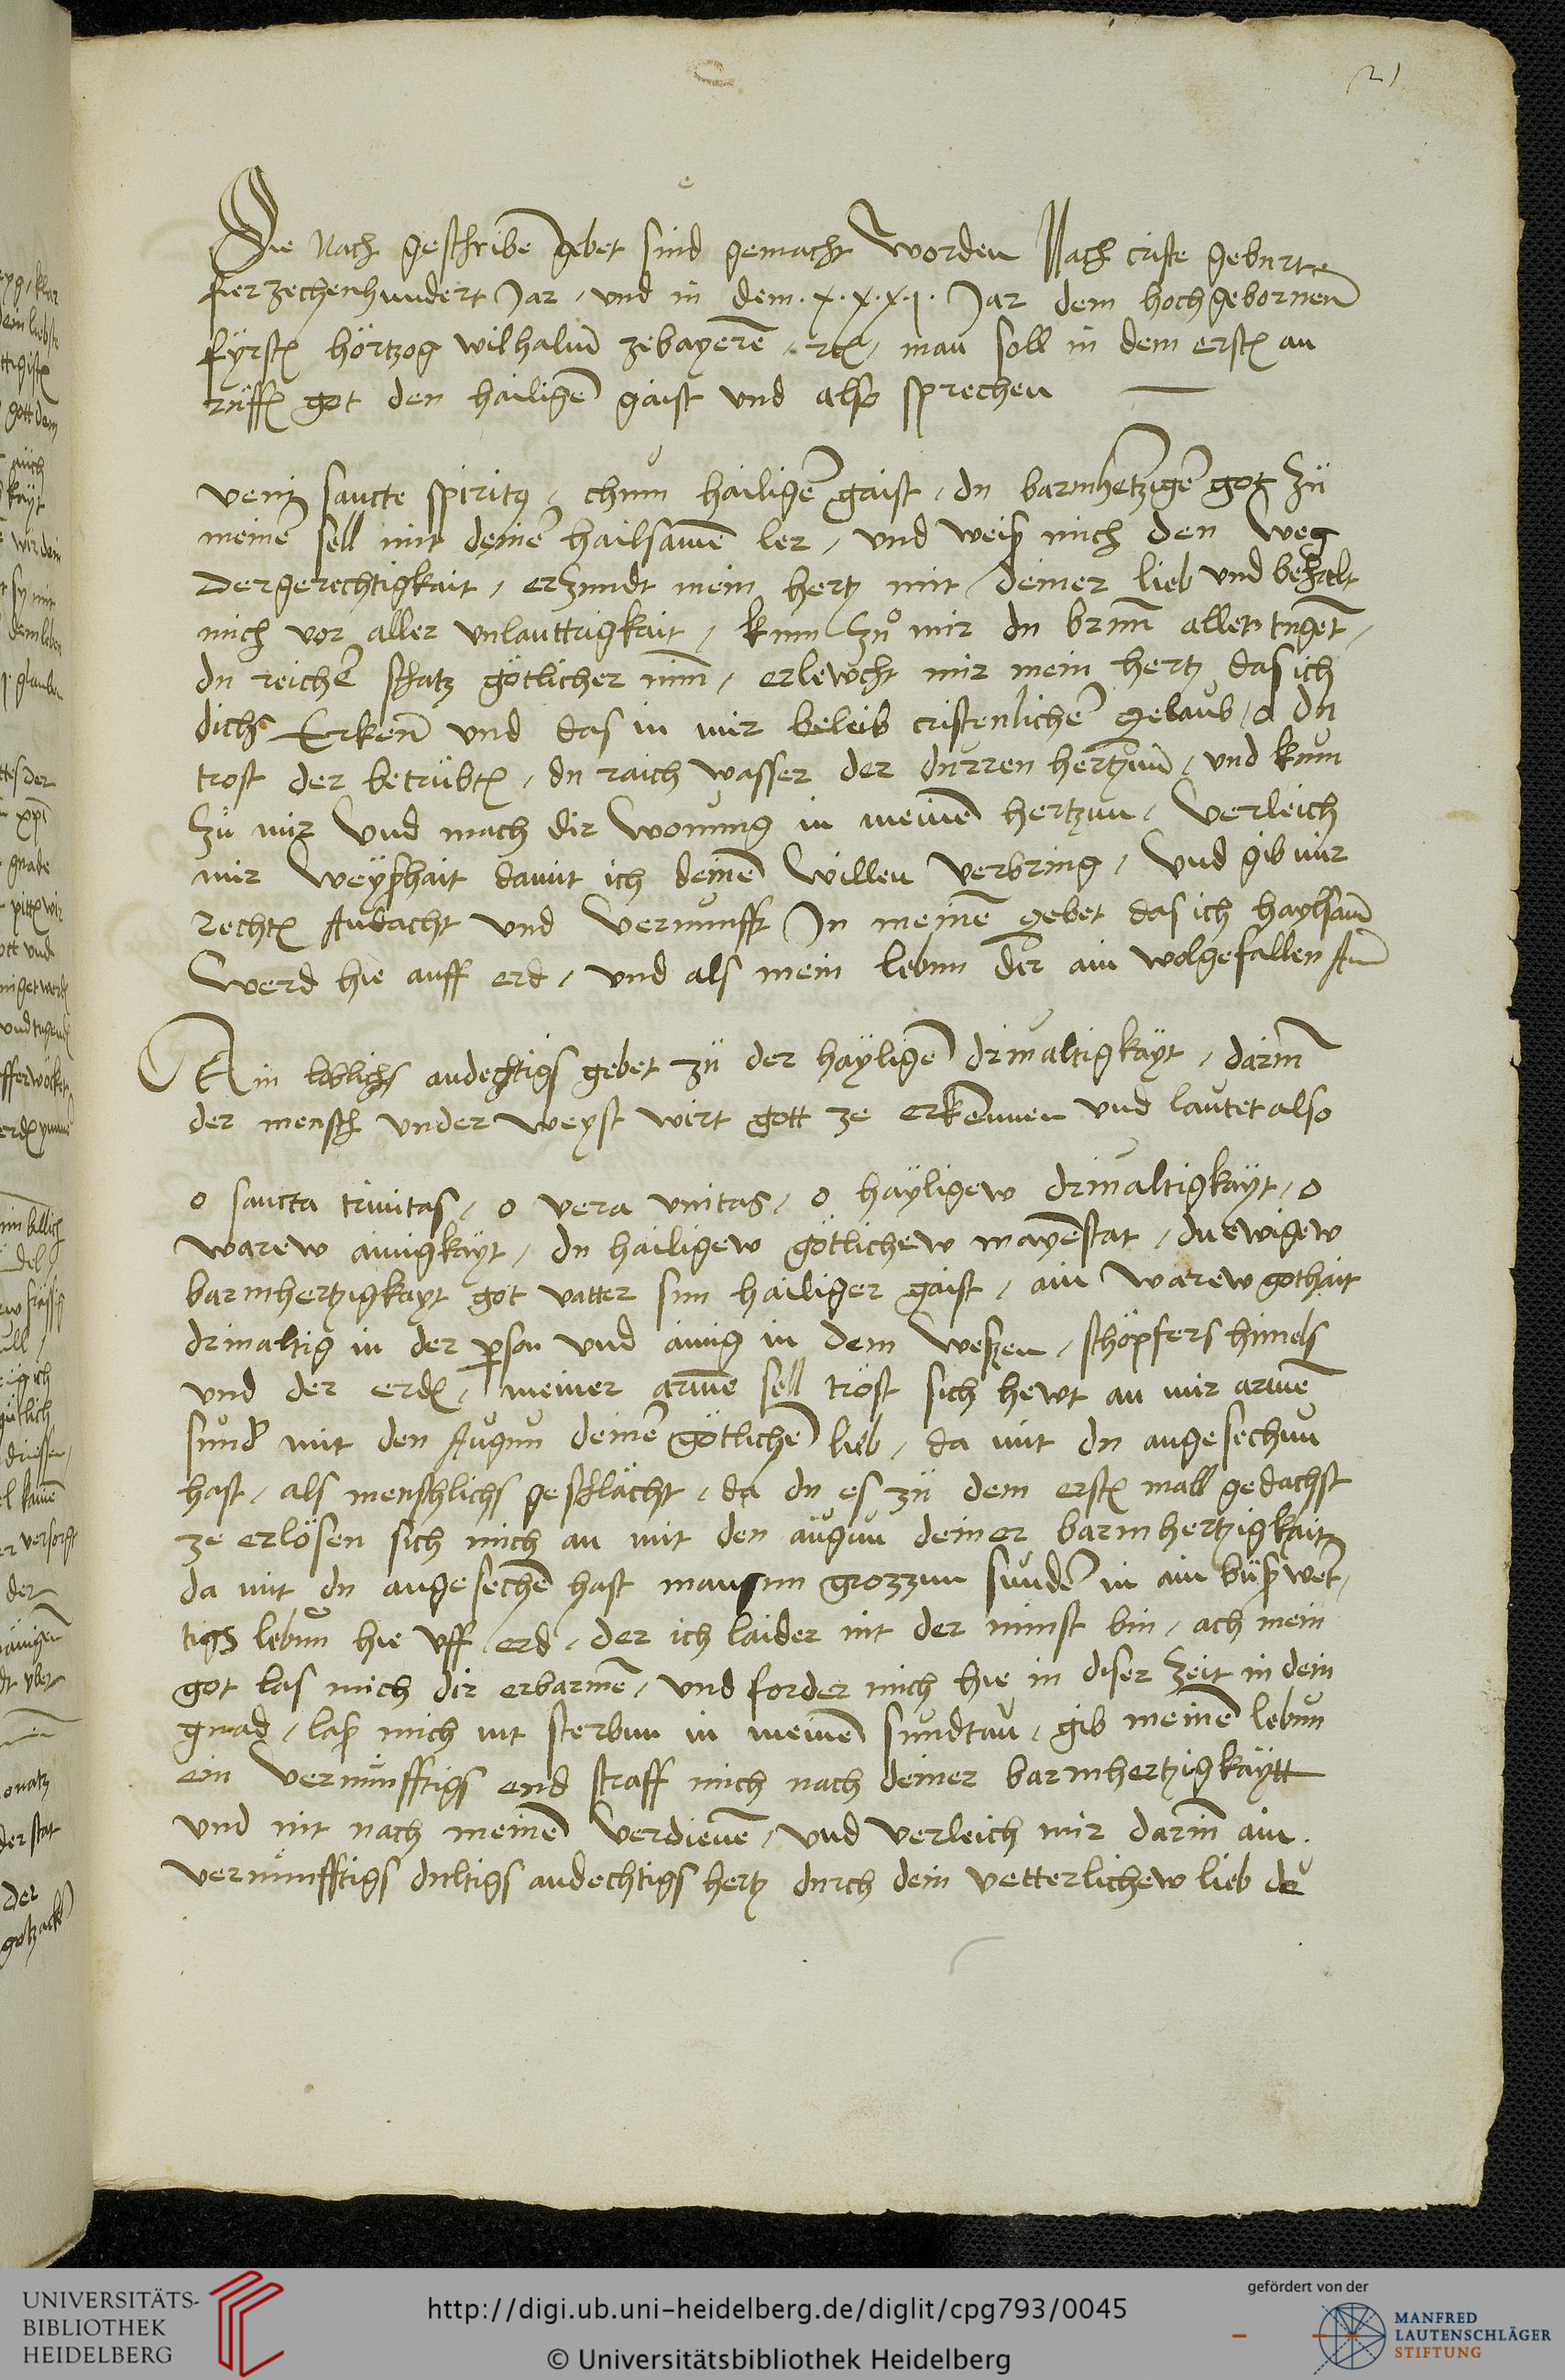 21
Die Nach geschriben gebet sind gemacht worden Nach criste geburte
fierzechenhundert Jar / und in dem .x.x.x.j. Jar dem hochgebornen
fyrsten hörtzog wilhalm zebayeren / etc / man soll in dem ersten an
rüffen got den hailigen gaist und also sprechen
veni sancte spiritus / chum hailigen gaist / du barmhetzigen got zü
meinen sell mit deinen hailsamen ler / und weiß mich den weg
der gerechtigkait / erzundt mein hertz mit deiner lieb und behalt
mich vor aller unlauttrigkait / kum zuͦ mir du brunn aller tugent /
du reicher schatz götlicher minn / erlewcht mir mein hertz das ich
dich Erkenn und das in mir beleib cristenlichen gelaub / o du
trost der betrübten / du raich wasser der durren hertzum / und kum
zü mir und mach dir wonung in meinen hertzun / verleich
mir weyßhait damit ich deinen willen verbring / und gib mir
rechten Andacht und vernunfft In meinen gebet das ich haylsam
werd hie auff erd / und als mein lebun der ain wolgefallen
Ain löblichs andechtigs gebet zü der hayligen drivaltigkayt / darinn
der mensch underweyst wirt gott ze erkennen und lautet also
o sancta trinitas / o vera unitas / o hayligew drivaltigkayt / o
warew ainigkayt / du hailigew götlichew mayenstat / du ewigew
barmhertzigkayt got vatter sun hailiger gaist / ain warew gothait
drivaltig in der person und ainig in dem weszen / schöpfers himels
und der erden / meiner armen sell tröst sich hewt an mir armen
sunder mit den Augun deinen götlichen lieb / da mit du angesechun
hast / als menschlichs geschlächt / da du es zü dem ersten mall gedachst
ze erlösen sich mich an mit den augun deiner barmhertzigkait
da mit du angesechen hast mangun grozzun sunder in ain büßwer
tigs lebun hie uff erd / der ich laider nit der minst bin / ach mein
got las mich dir erbarmen / und forder mich hie in diser zeit in dein
gnad / laß mich nit sterbun in meinen sundtan / gib meinen lebun
ein vernünfftigs end straff mich nach deiner barmhertzigkaytt
und nit nach meinen verdienen / und verleich mir darinn ain
vernünfftigs dultigs andechtigs hertz durch dein vetterlichew lieb
UNIVERSITÄTS-
BIBLIOTHEK
HEIDELBERG
http://digi.ub.uni-heidelberg.de/diglit/cpg793/0045
© Universitätsbibliothek Heidelberg
gefördert von der
MANFRED
LAUTENSCHLÄGER
STIFTUNG